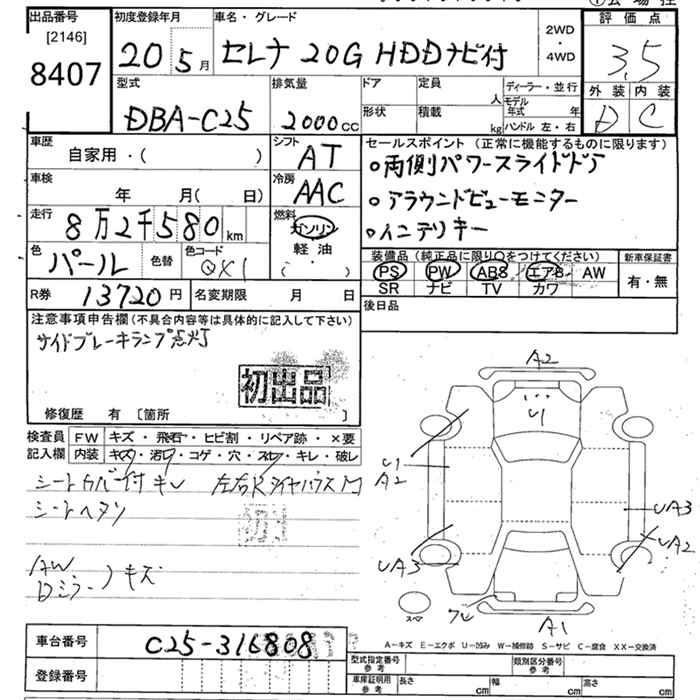 出品番号
[2146]
8407
初度登録年月
20 5月
車名・グレード
セレナ 20G HDDナビ付
2WD
・
4WD
評価点
3.5
外装 内装
D C
型式
DBA-C25
排気量
2000cc
ドア
形状
定員
人
積載
kg
ディーラー・並行
モデル年式 年
ハンドル 左・右
車歴
自家用・( )
シフト
AT
セールスポイント(正常に機能するものに限ります)
○両側パワースライドドア
○アラウンドビューモニター
○インテリキー
車検
年 月( 日)
冷房
AAC
走行
8万2千580km
燃料
ガソリン
軽油
( )
色
パール
色替
色コード
QX1
装備品(純正品に限り○をつけてください)
PS PW AB8 エアB AW
SR ナビ TV カワ
新車保証書
有・無
R券 13720円
名変期限 月 日
後日品
注意事項申告欄(不具合内容等は具体的に記入して下さい)
サイドブレーキランプ点灯
初出品
修復歴 有 [箇所 ]
検査員記入欄
FW キズ・飛石・ヒビ割・リペア跡・×要
内装 キズ・汚れ・コゲ・穴・スレ・キレ・破レ
シートカバー付キレ
シートヘタリ
AW
Dミラー キズ
A2
U1
U1
A2
UA3
UA2
UA3
A1
スペア
A-キズ E-エクボ U-凹み W-補修跡 S-サビ C-腐食 XX-交換済
車台番号
C25-316808
登録番号
型式指定番号
参考
類別区分番号
参考
車庫証明用
参考
長さ cm
幅 cm
高さ cm